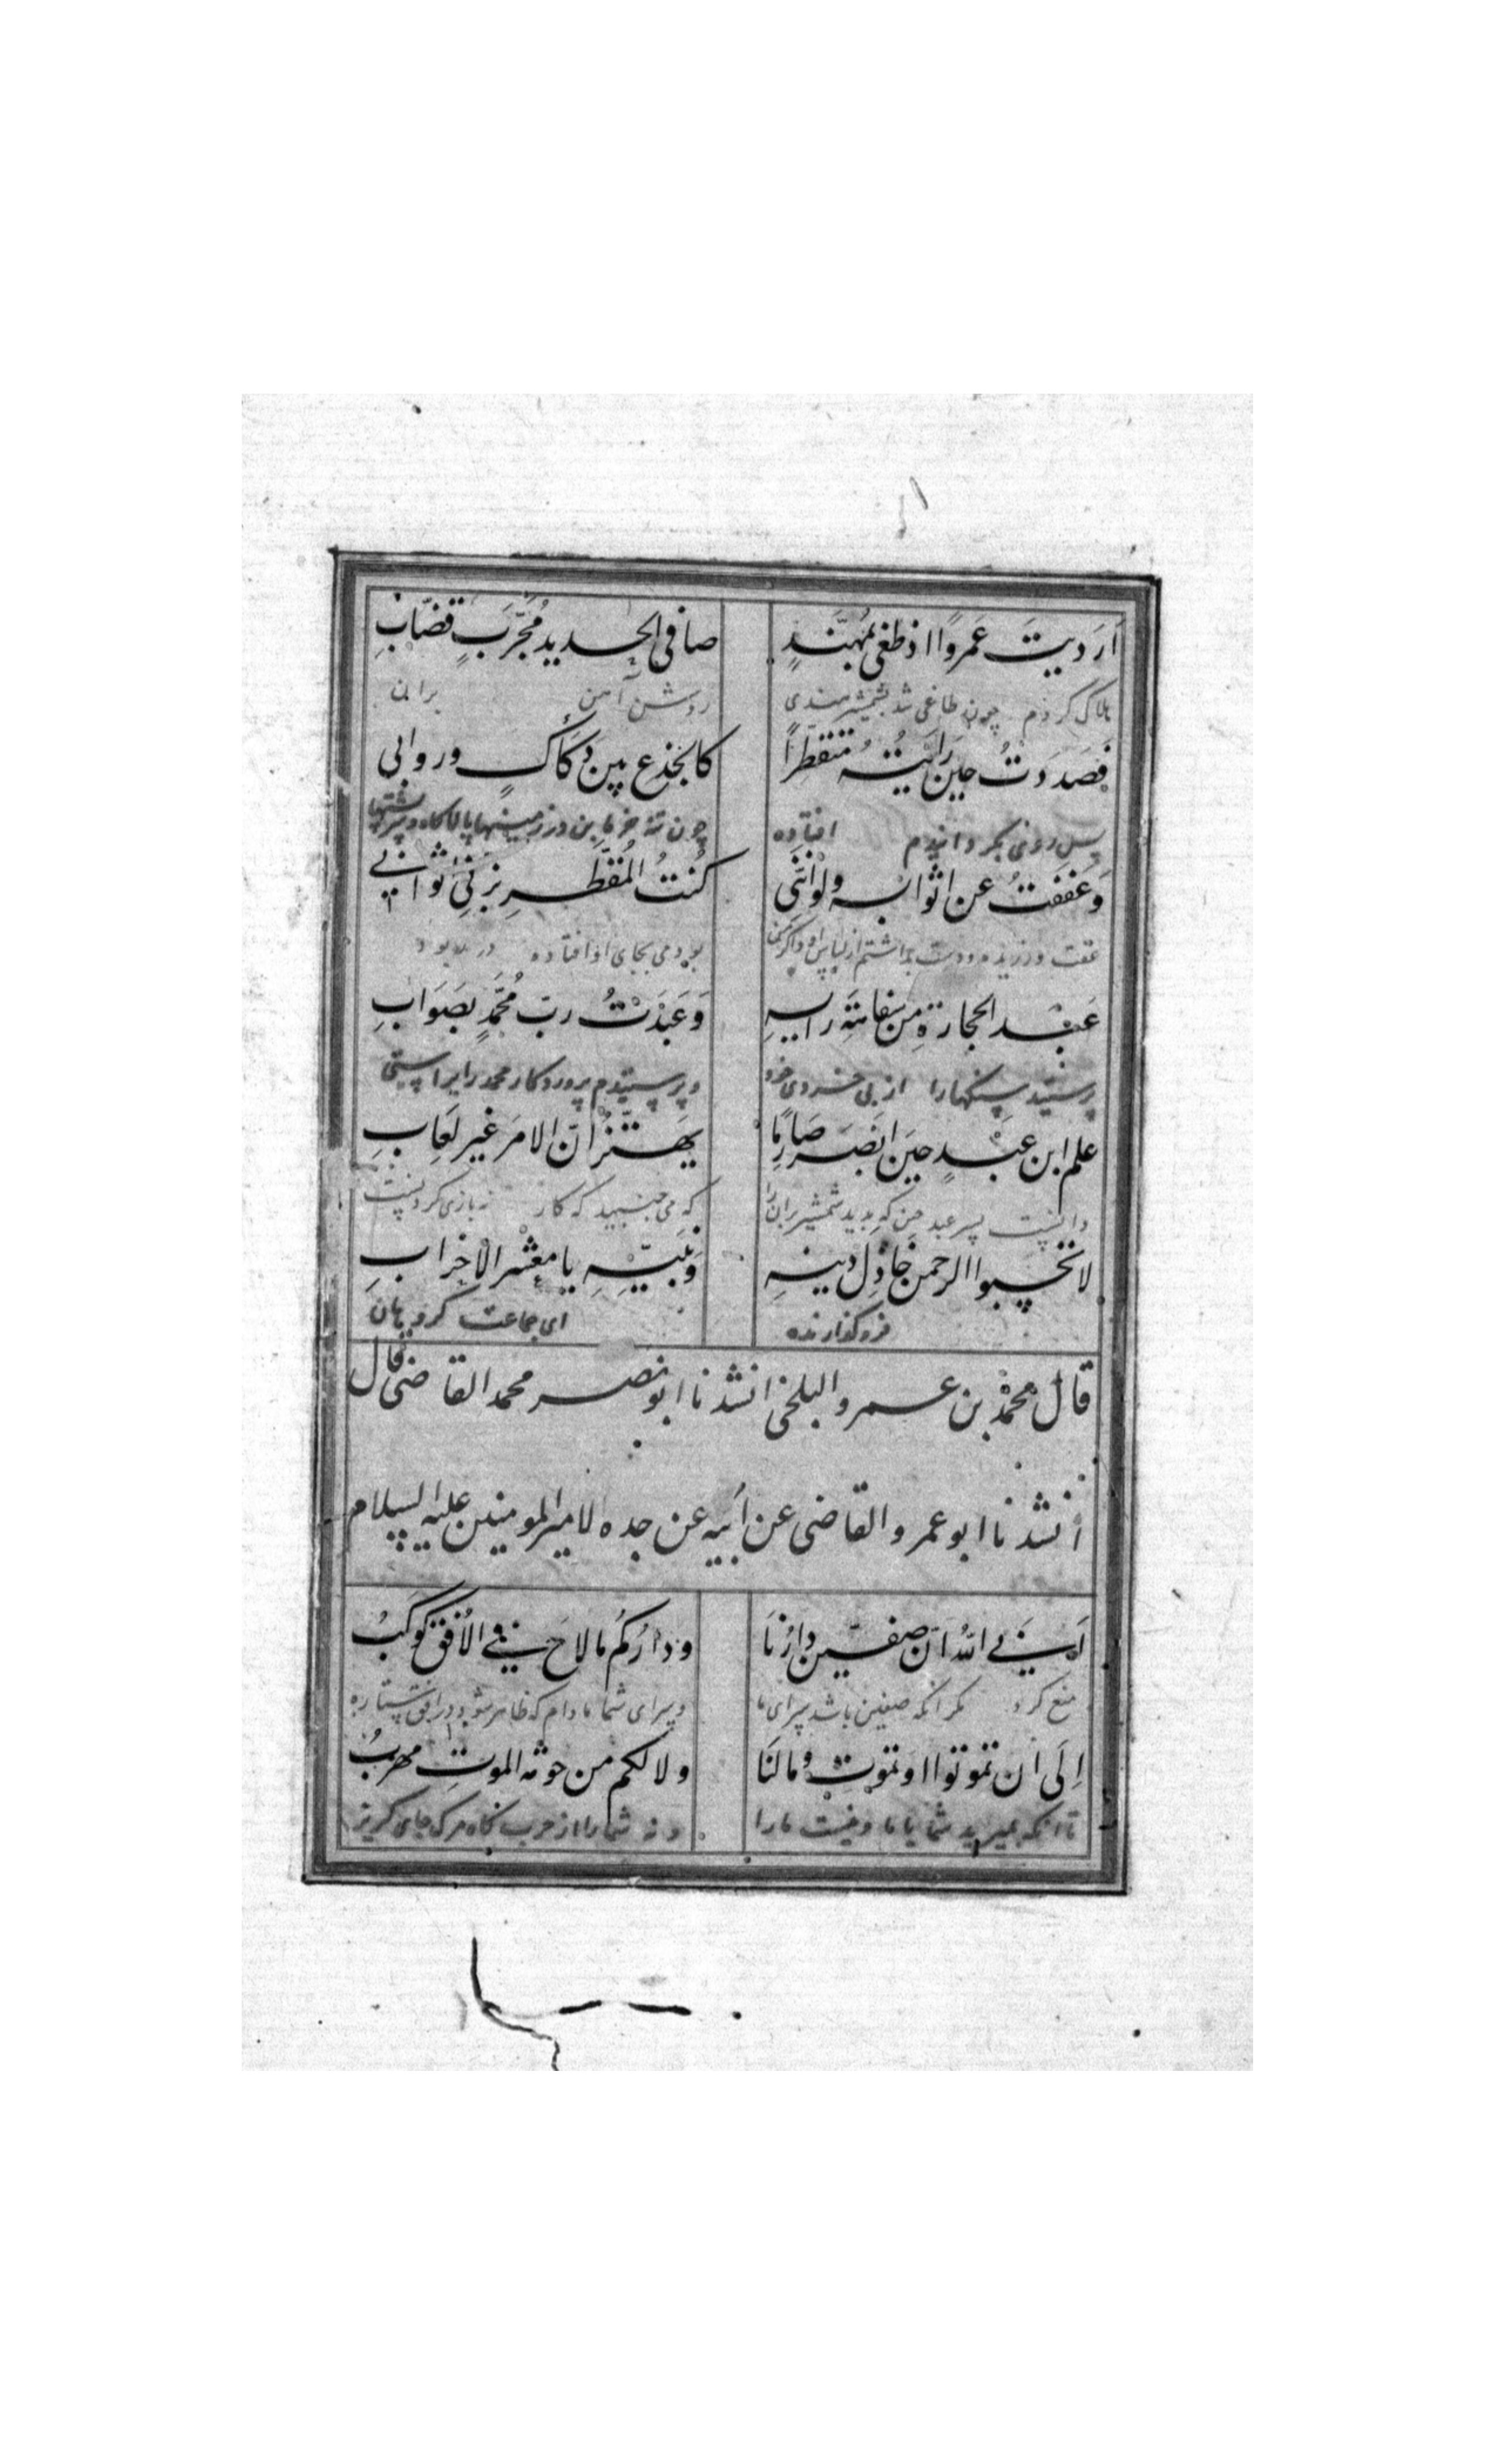 اَرَدیتَ عَمرواً اذ طغی بمُهنَّدٍ صافی الحدید مُجَّرَبٍ قضّابِ
هلاک کردم چون طاغی شد بشمشیر هندی روشن آهن بران
فصَدَدتُ حینَ رَایتُهُ متقطِّراً کالجذعِ بین دَکادَکٍ وروابی
پس روی بگردانیدم افتاده چون تنه خرما بن در زمینها
وَعَففتُ عن اثوابه ولو اننی کُنتُ المُقطَّرِ بزّنی اثوابی
عفت ورزیدم ودست بداشتم از لباس او واکر من بودمی بجای او افتاده در ربودی
عَبَد الحجارةَ من سفاهَةِ رایِهِ وَعَبَدْتُ ربَّ مُحمَّدٍ بصَوَابِ
پرستید سنکها را از بی خردی خود وپرستیدم پروردکار محمد را براستی
علم ابن عَبْدٍ حینَ ابْصَرَ صَارِمًا یَهتزُّ انّ الامرَ غیر لَعِابِ
دانست پسر عبد حین که بدید شمشیر بران را که می جنبید که کار نه بازی کردنست
لا تحسبوا الرحمن خاذِل دینِهِ وَنَبیِّهِ یا معْشر الاحزابِ
فرو کذارنده ای جماعت کروهان
قال محمدْ بن عمرو البلخی انشدنا ابو نصر محمد القاضی قال
انشدنا ابو عمرو القاضی عن اَبیه عن جده لامیر المومنین علیه السلام
اَبی اللّهُ انّ صفّین دارُنَا ودارُکُم مالاحَ فی الاُفق کوکبُ
منع کرد مکر انکه صفین باشد سرای ما وسرای شما مادام که ظاهر شود در افق ستاره
اِلَی ان تموتوا او نموتَ ومالنَا ولا لکم من حومه الموتِ مهربُ
تا انکه بمیرید شما یا ما ونیست ما را ونه شما را از حرب کاه مرک جای کریز